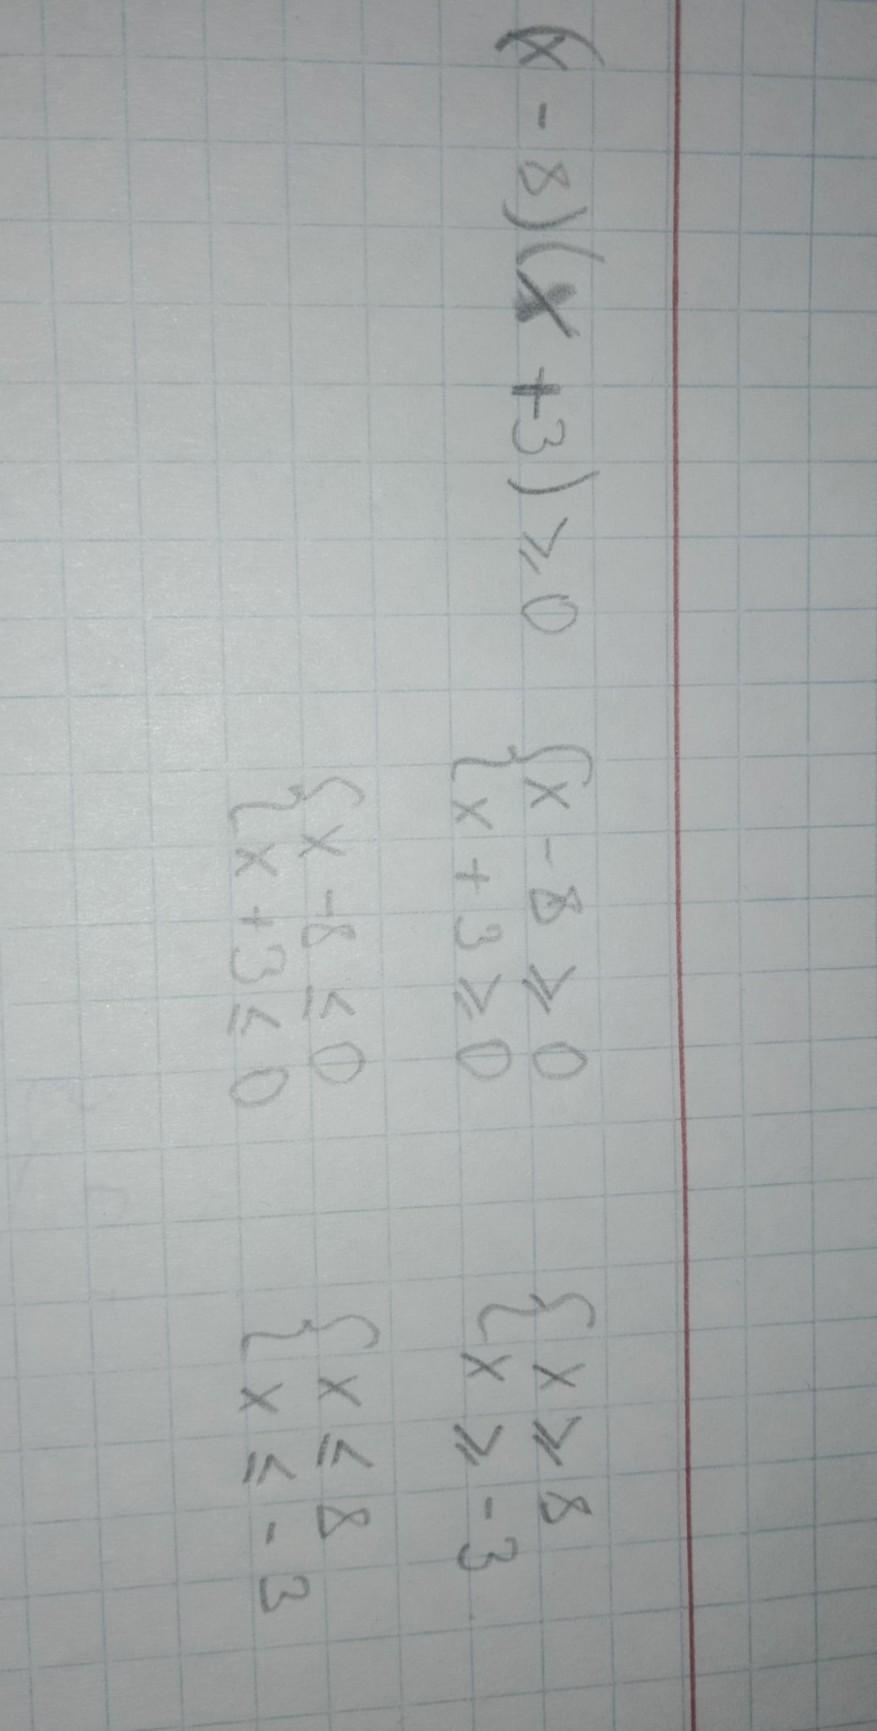 (x - 8)(x + 3) ⩾ 0
{ x - 8 ⩾ 0
x + 3 ⩾ 0
{ x ⩾ 8
x ⩾ -3
{ x - 8 ≤ 0
x + 3 ≤ 0
{ x ≤ 8
x ≤ -3